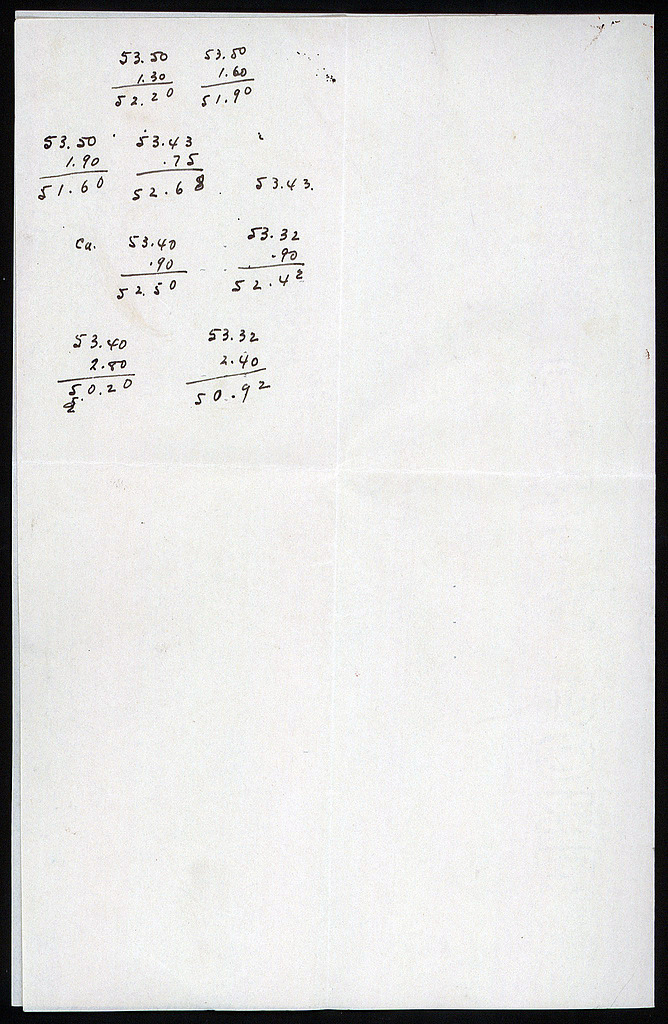 53.50 53.50
1.30 1.60
52.20 51.90
53.50 53.43
1.90 .75
51.60 52.68 53.43.
Ca. 53.40 53.32
.90 .90
52.50 52.42
53.40 53.32
2.80 2.40
50.20 50.92